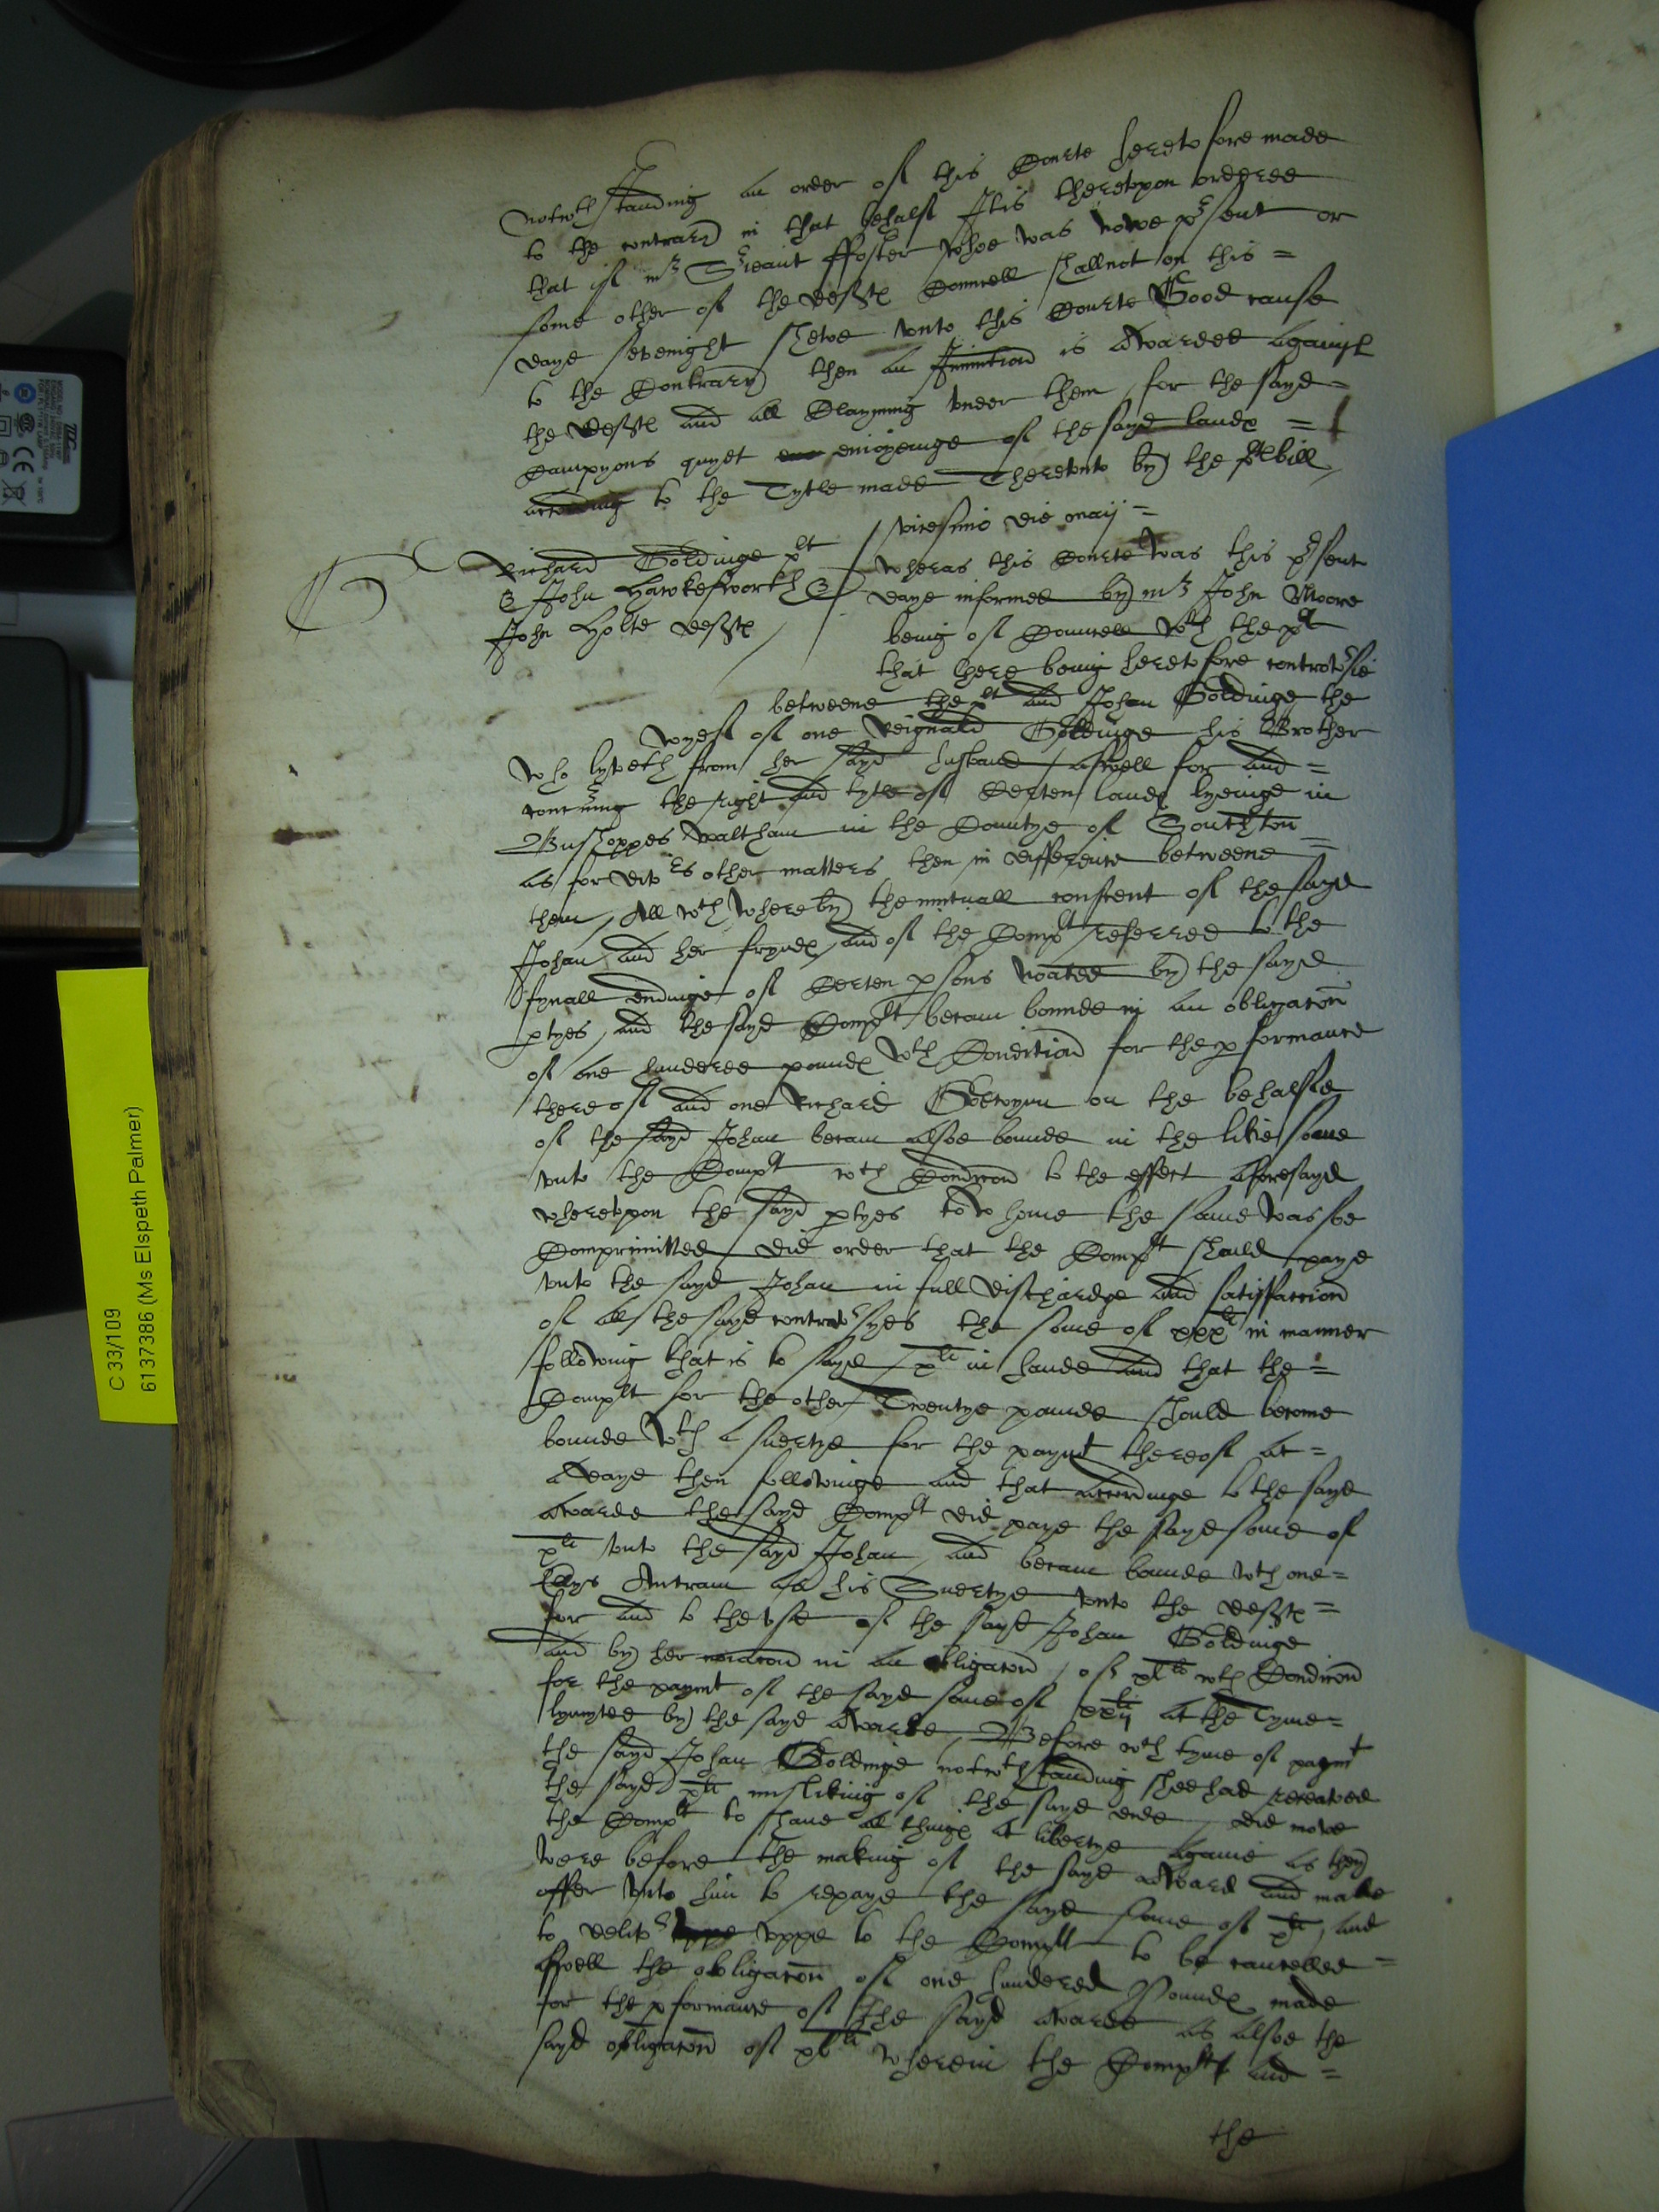 notwthstanding an order of this Courte heretofore made
to the contrary in that behalf It is thereupon ordered
that if mr Sreaunt ffoster whoe was nowe psent or
some other of the defts Councell shall not on this =
daye sevenight shewe unto this Courte Good cause
to the Contrary then an Iniunction is Awarded Against
the defts and all Clayming under them for the sayd =
Campyons quyet enioyeinge of the sayd landes =
according to the Tytle made Thereunto by the plt bill
vicesimo die maij =
Richard Goldinge plt
& John Hawkesworth &
John Holte defts
Wheras this Courte was this psent
daye informed by mr John Moore
being of Councell wth the plt
that there being heretofore controvsie
betweene the plt and Johan Goldinge the
wyef of one Reignald Goldinge his Brother
who lyveth from her sayd husband aswell for and =
concning the right and tytle of Certen landes lyeinge in
Busshoppes waltham in the Countye of Southton
as for divers other matters then in difference betweene =
them, All wch whereby the mutuall consent of the sayd
Johan and her fryndes and of the Complt referred to the
fynall endinge of Certen psons noated by the sayd
ptyes, and the sayd Complt becam bounde in an obligacon
of one hundered poundes wth Condition for the pformance
thereof and one Richard Godwynn on the behalfe
of the sayd Johan becam alsoe bounde in the like some
unto the Complt wth Condicon to the effect Aforesayd
whereupon the sayd ptyes to whome the same was soe
Comprimitted did order that the Complt should paye
unto the sayd Johan in full dischardge and satisfaccion
of all the sayd controvsyes the some of xxxli in manner
following that is to saye xli in hande and that the =
Complt for the other Twentye pounde should become
bounde wth a suertye for the paymt thereof at =
a daye then followinge and that accordinge to the sayd
awarde the sayd Complt did paye the sayd some of
xli unto the sayd Johan, and becam bounde wth one =
Ellys Antram as his Suertye unto the defts =
for and to the use of the sayd Johan Goldinge
and by her noiacon in an obligacon, of xlli wth Condicon
for the paymt of the sayd some of xxli at the Tyme =
lymyted by the sayd Awarde, Before wch tyme of paymt
the sayd Johan Goldinge notwthstanding shee had receaved
the sayd xli misliking of the sayd ende, did move
the Complt to have all thinges at libertye Againe as they
were before the making of the sayd Award and made
offer unto him to repaye the sayd some of xli, and
to delivr uppe to the Complt to be cancelled =
Aswell the obligacon of one hundered Poundes made
for the pformance of the sayd awarde as alsoe the
sayd obligacon of xlli wherein the Complt and =
the
C 33/109
61 37386 (Ms Elspeth Palmer)